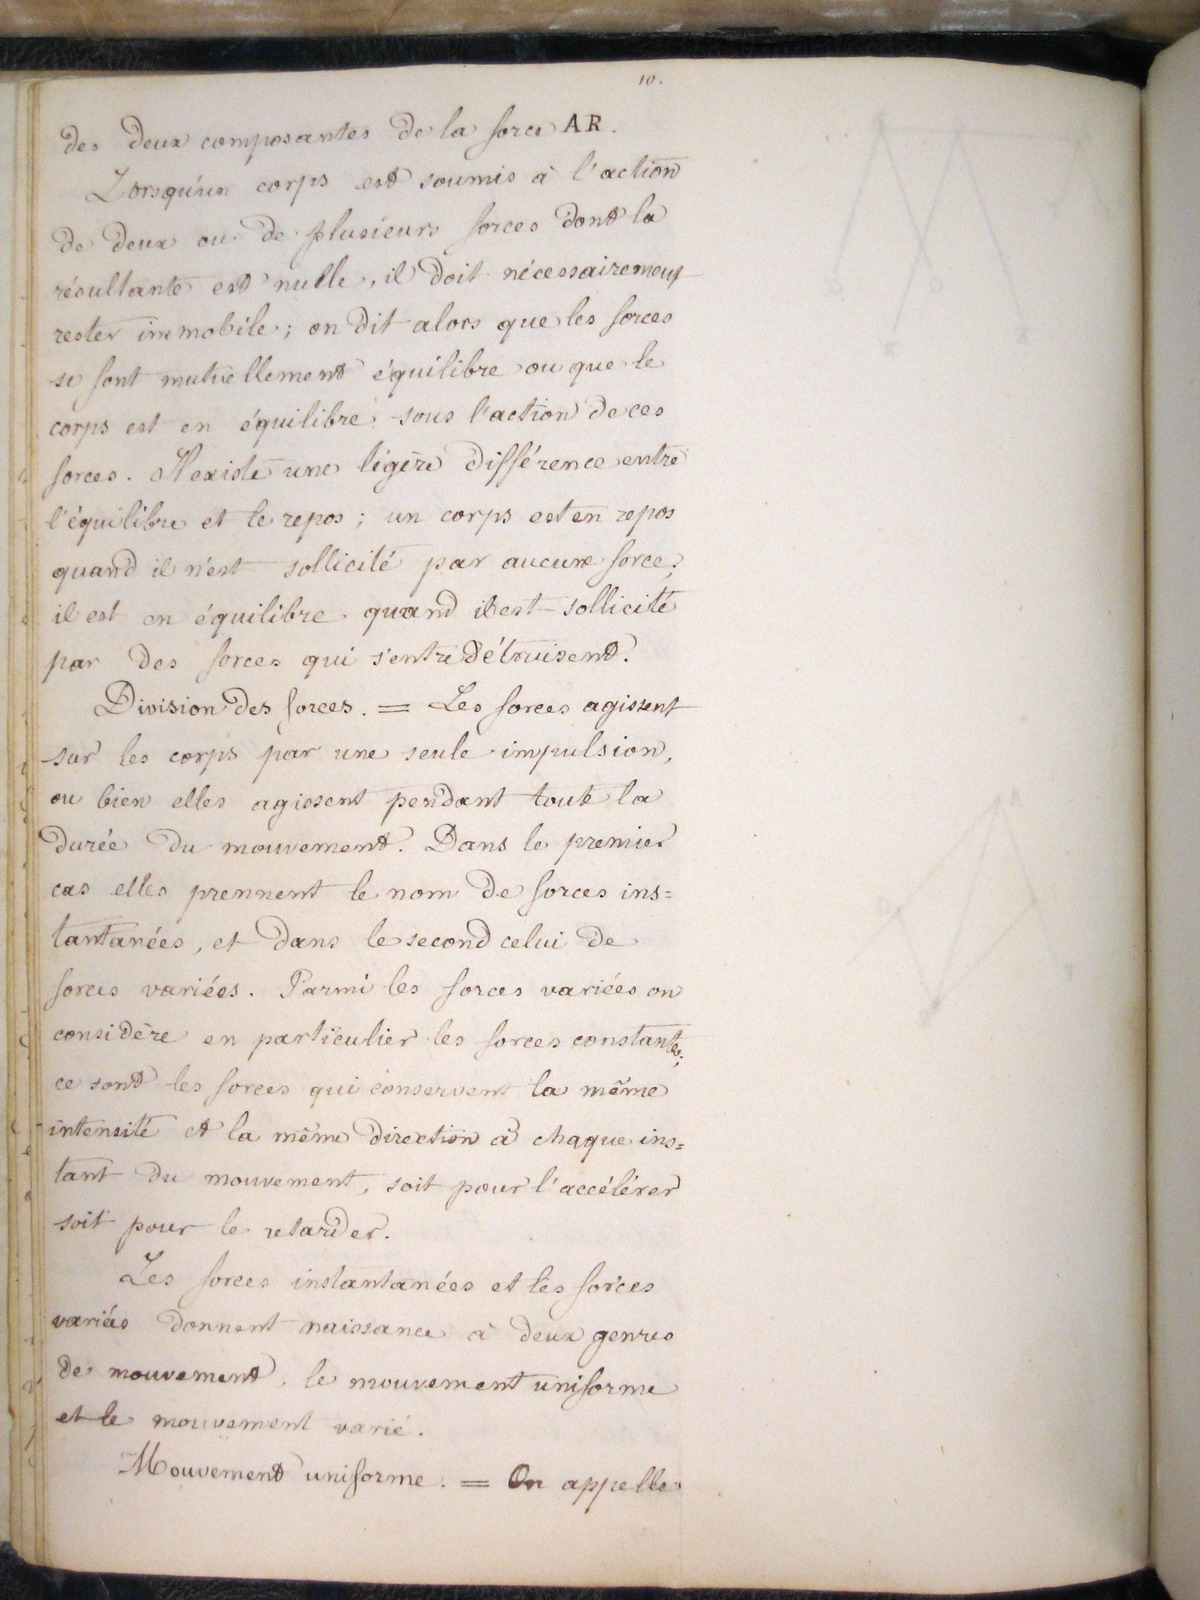 10.
des deux composantes de la force AR.
Lorsqu'un corps est soumis à l'action
de deux ou de plusieurs forces dont la
résultante est nulle, il doit nécessairement
rester immobile; on dit alors que les forces
se font mutuellement équilibre ou que le
corps est en équilibre sous l'action de ces
forces. Il existe une légère différence entre
l'équilibre et le repos; un corps est en repos
quand il n'est sollicité par aucune force;
il est en équilibre quand il est sollicité
par des forces qui s'entredétruisent.
Division des forces. = Les forces agissent
sur les corps par une seule impulsion,
ou bien elles agissent pendant toute la
durée du mouvement. Dans le premier
cas elles prennent le nom de forces ins=
tantanées, et dans le second celui de
forces variées. Parmi les forces variées on
considère en particulier les forces constantes;
ce sont les forces qui conservent la même
intensité et la même direction à chaque ins=
tant du mouvement, soit pour l'accélérer
soit pour le retarder.
Les forces instantanées et les forces
variées donnent naissance à deux genres
de mouvement, le mouvement uniforme
et le mouvement varié.
Mouvement uniforme. = On appelle